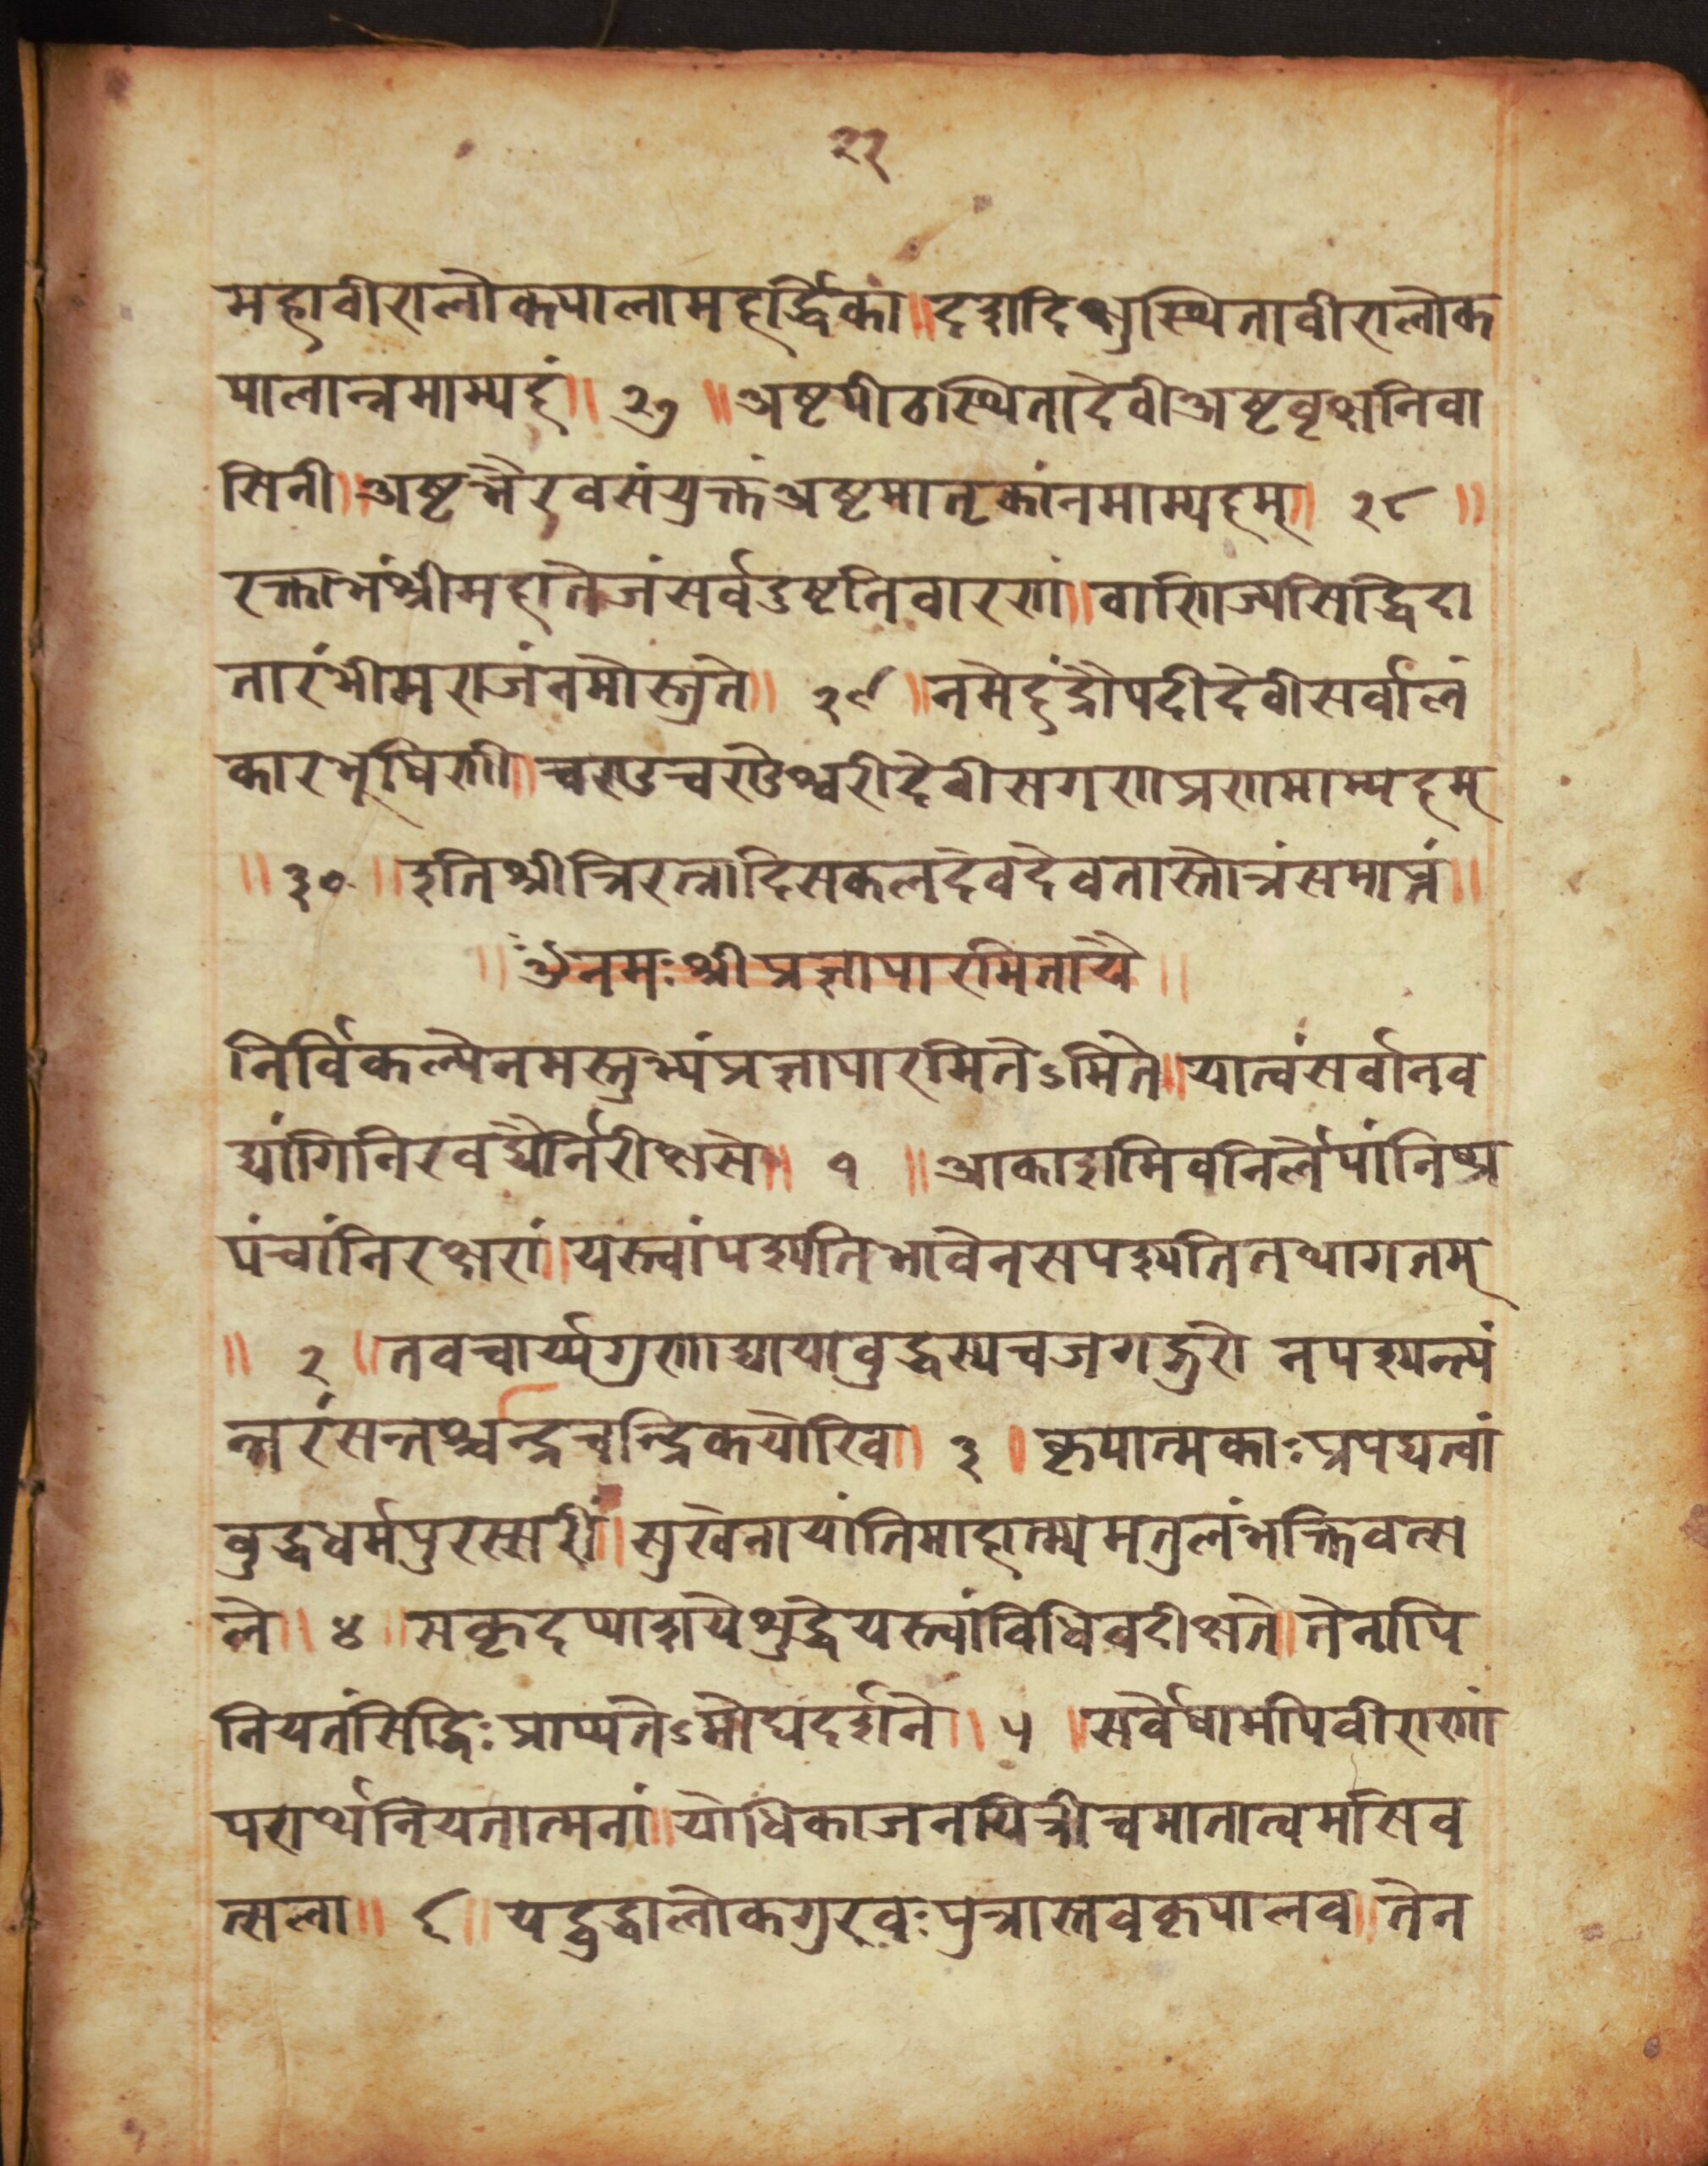 २२
महावीरालोकपालामहर्द्धिकां॥दशदिक्षुस्थितावीरालोक
पालान्नमाम्यहं॥ २७ ॥अष्टपीठस्थितादेवीअष्टवृक्षनिवा
सिनी॥अष्टभैरवसंयुक्तंअष्टमातृकांनमाम्यहम्॥ २८ ॥
रक्ताभंश्रीमहातेजंसर्वदुष्टनिवारणं॥वाणिज्यसिद्धिदा
तारंभीमराजंनमोस्तुते॥ २९ ॥नमेहंद्रौपदीदेवीसर्वालं
कारभूषिणी॥चण्डचण्डेश्वरीदेवीसगणप्रणमाम्यहम्
॥३०॥इतिश्रीत्रिरत्नादिसकलदेवदेवतास्तोत्रंसमाप्तं॥
॥ॐनमःश्रीप्रज्ञापारमितायै॥
निर्विकल्पेनमस्तुभ्यंप्रज्ञापारमितेऽमिते॥यात्वंसर्वानव
द्यांगिनिरवद्यैर्निरीक्षसे॥ १ ॥आकाशमिवनिर्लेपांनिष्प्र
पंचांनिरक्षरां॥यस्त्वांपश्यतिभावेनसपश्यतितथागतम्
॥ २ ॥तवचार्य्यगुणाद्यायाबुद्धस्यचजगद्गुरो नपश्यन्त्यं
न्तरंसन्तश्चन्द्रचन्द्रिकयोरिव॥ ३ ॥कृपात्मकाःप्रपद्यत्वां
बुद्धधर्मपुरस्सरीं॥सुखेनायांतिमाहात्म्यमतुलंभक्तिवत्स
ले॥ ४ ॥सकृदप्याशयेशुद्धेयस्त्वांविधिवदीक्षते॥तेनापि
नियतंसिद्धिःप्राप्यतेऽमोघदर्शने॥ ५ ॥सर्वेषामपिवीराणां
परार्थनियतात्मनां॥योधिकाजनयित्रीचमातात्वमसिव
त्सला॥ ६ ॥यद्बुद्धालोकगुरवःपुत्रास्तवकृपालव॥तेन